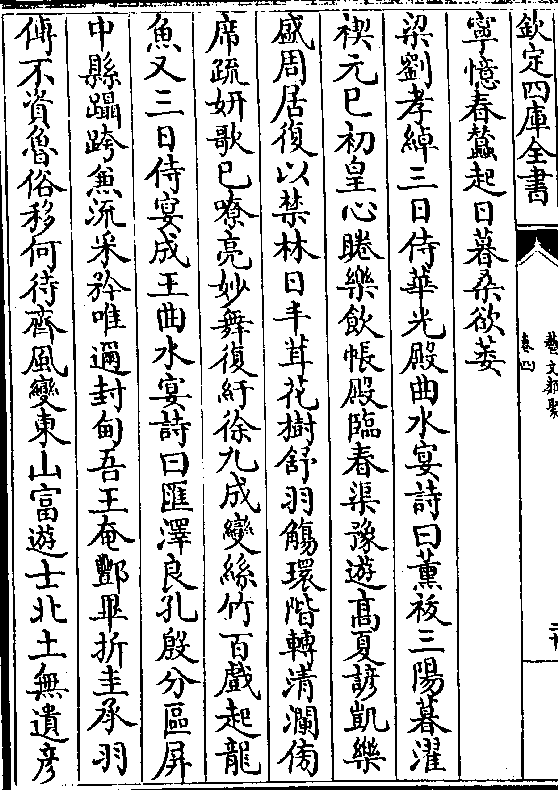 欽定四庫全書
藝文類聚
卷四
寧憶春蠶起日暮桑欲萎
梁劉孝綽三日侍華光殿曲水宴詩曰薰祓三陽暮濯
禊元巳初皇心睠樂飲帳殿臨春渠豫遊髙夏諺凱樂
盛周居復以禁林日丰茸花樹舒羽觴環階轉清瀾傍
席疏妍歌已嘹亮妙舞復紆徐九成變絲竹百戲起龍
魚又三日侍宴成王曲水宴詩曰匯澤良孔殷分區屏
中縣躡跨兼流采矜唯邇封甸吾王奄酆畢折圭承羽
傅不資魯俗移何待齊風變東山富遊士北土無遺彦